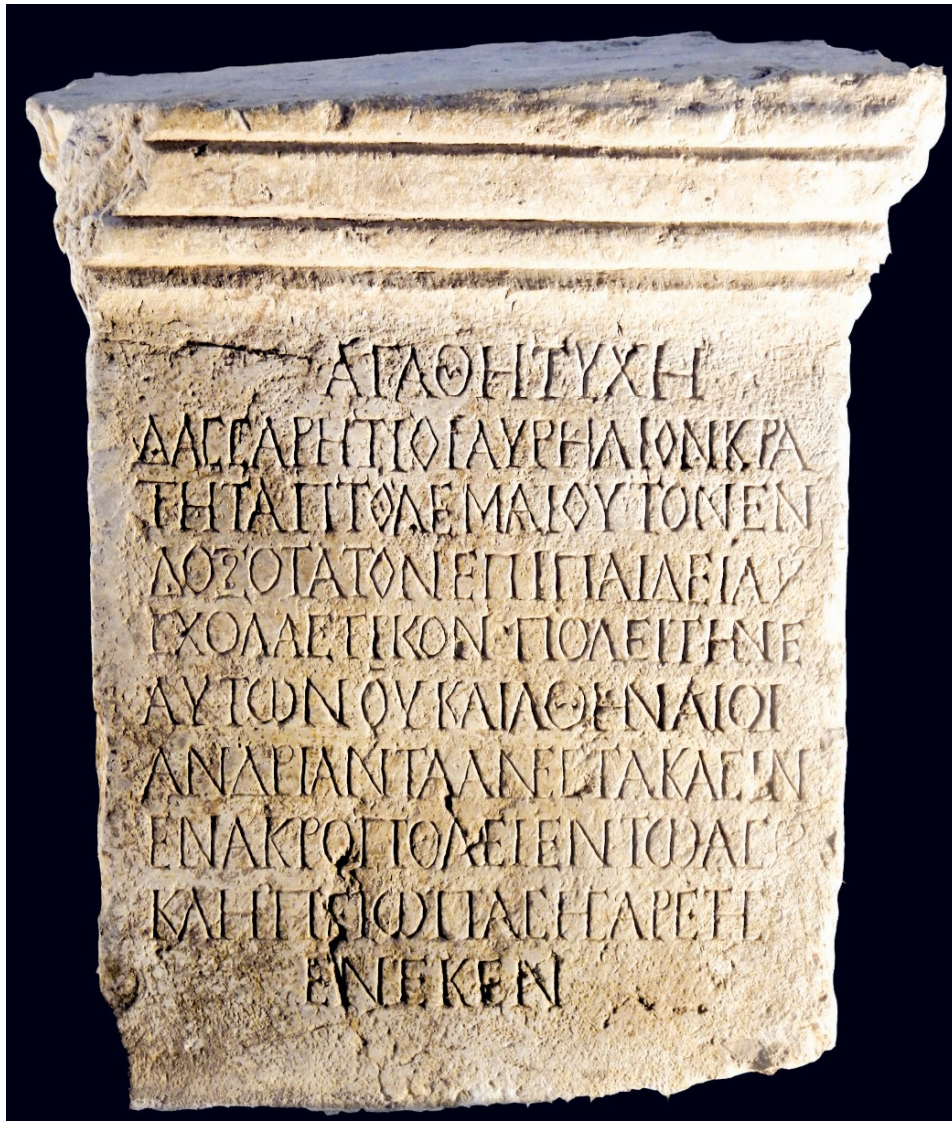 ΑΓΑΘΗΤΥΧΗ
ΔΑϹϹΑΡΗΤΙΟΙΑΥΡΗΛΙΟΝΚΡΑ
ΤΗΤΑΠΤΟΛΕΜΑΙΟΥΤΟΝΕΝ
ΔΟΞΟΤΑΤΟΝΕΠΙΠΑΙΔΕΙΑ
ϹΧΟΛΑϹΤΙΚΟΝΠΟΛΕΙΤΗΝΕ
ΑΥΤΩΝΟΥΚΑΙΑΘΗΝΑΙΟΙ
ΑΝΔΡΙΑΝΤΑΑΝΕϹΤΑΚΑϹΙΝ
ΕΝΑΚΡΟΠΟΛΕΙΕΝΤΩΑϹ
ΚΛΗΠΙΕΙΩΠΑϹΗϹΑΡΕΤΗ
ΕΝΕΚΕΝ